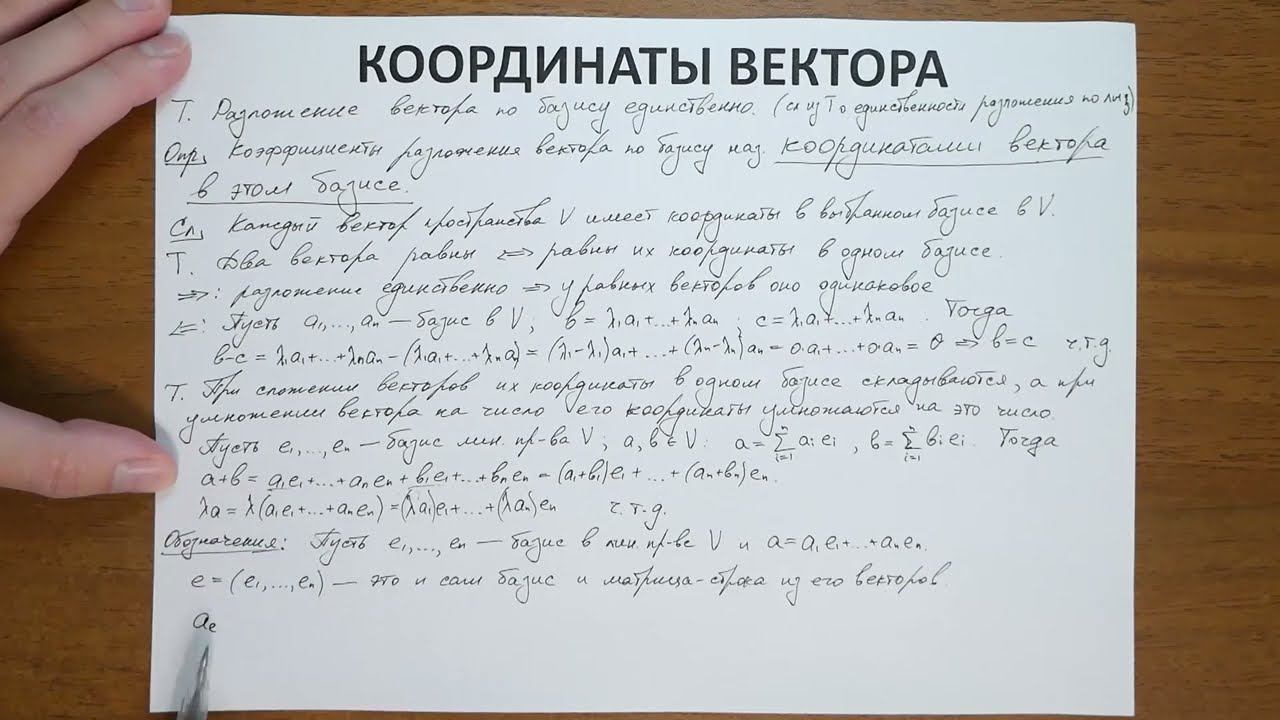 КООРДИНАТЫ ВЕКТОРА
Т. Разложение вектора по базису единственно. (сл из Т о единственности разложения по ЛНЗ)
Опр. Коэффициенты разложения вектора по базису наз. координатами вектора
в этом базисе.
Сл. Каждый вектор пространства V имеет координаты в выбранном базисе в V.
Т. Два вектора равны ⇔ равны их координаты в одном базисе.
⇒: разложение единственно ⇒ у равных векторов оно одинаковое
⇐: Пусть a₁,…,aₙ — базис в V; b = λ₁a₁+…+λₙaₙ; c = λ₁a₁+…+λₙaₙ. Тогда
b-c = λ₁a₁+…+λₙaₙ - (λ₁a₁+…+λₙaₙ) = (λ₁-λ₁)a₁+…+(λₙ-λₙ)aₙ = 0·a₁+…+0·aₙ = θ ⇒ b=c ч.т.д.
Т. При сложении векторов их координаты в одном базисе складываются, а при
умножении вектора на число его координаты умножаются на это число.
Пусть e₁,…,eₙ — базис лин. пр-ва V; a,b∈V: a=∑ⁿᵢ₌₁ aᵢeᵢ, b=∑ⁿᵢ₌₁ bᵢeᵢ. Тогда
a+b = a₁e₁+…+aₙeₙ + b₁e₁+…+bₙeₙ = (a₁+b₁)e₁+…+(aₙ+bₙ)eₙ.
λa = λ(a₁e₁+…+aₙeₙ) = (λa₁)e₁+…+(λaₙ)eₙ ч.т.д.
Обозначения: Пусть e₁,…,eₙ — базис в лин. пр-ве V и a=a₁e₁+…+aₙeₙ.
e = (e₁,…,eₙ) — это и сам базис и матрица-строка из его векторов.
aₑ